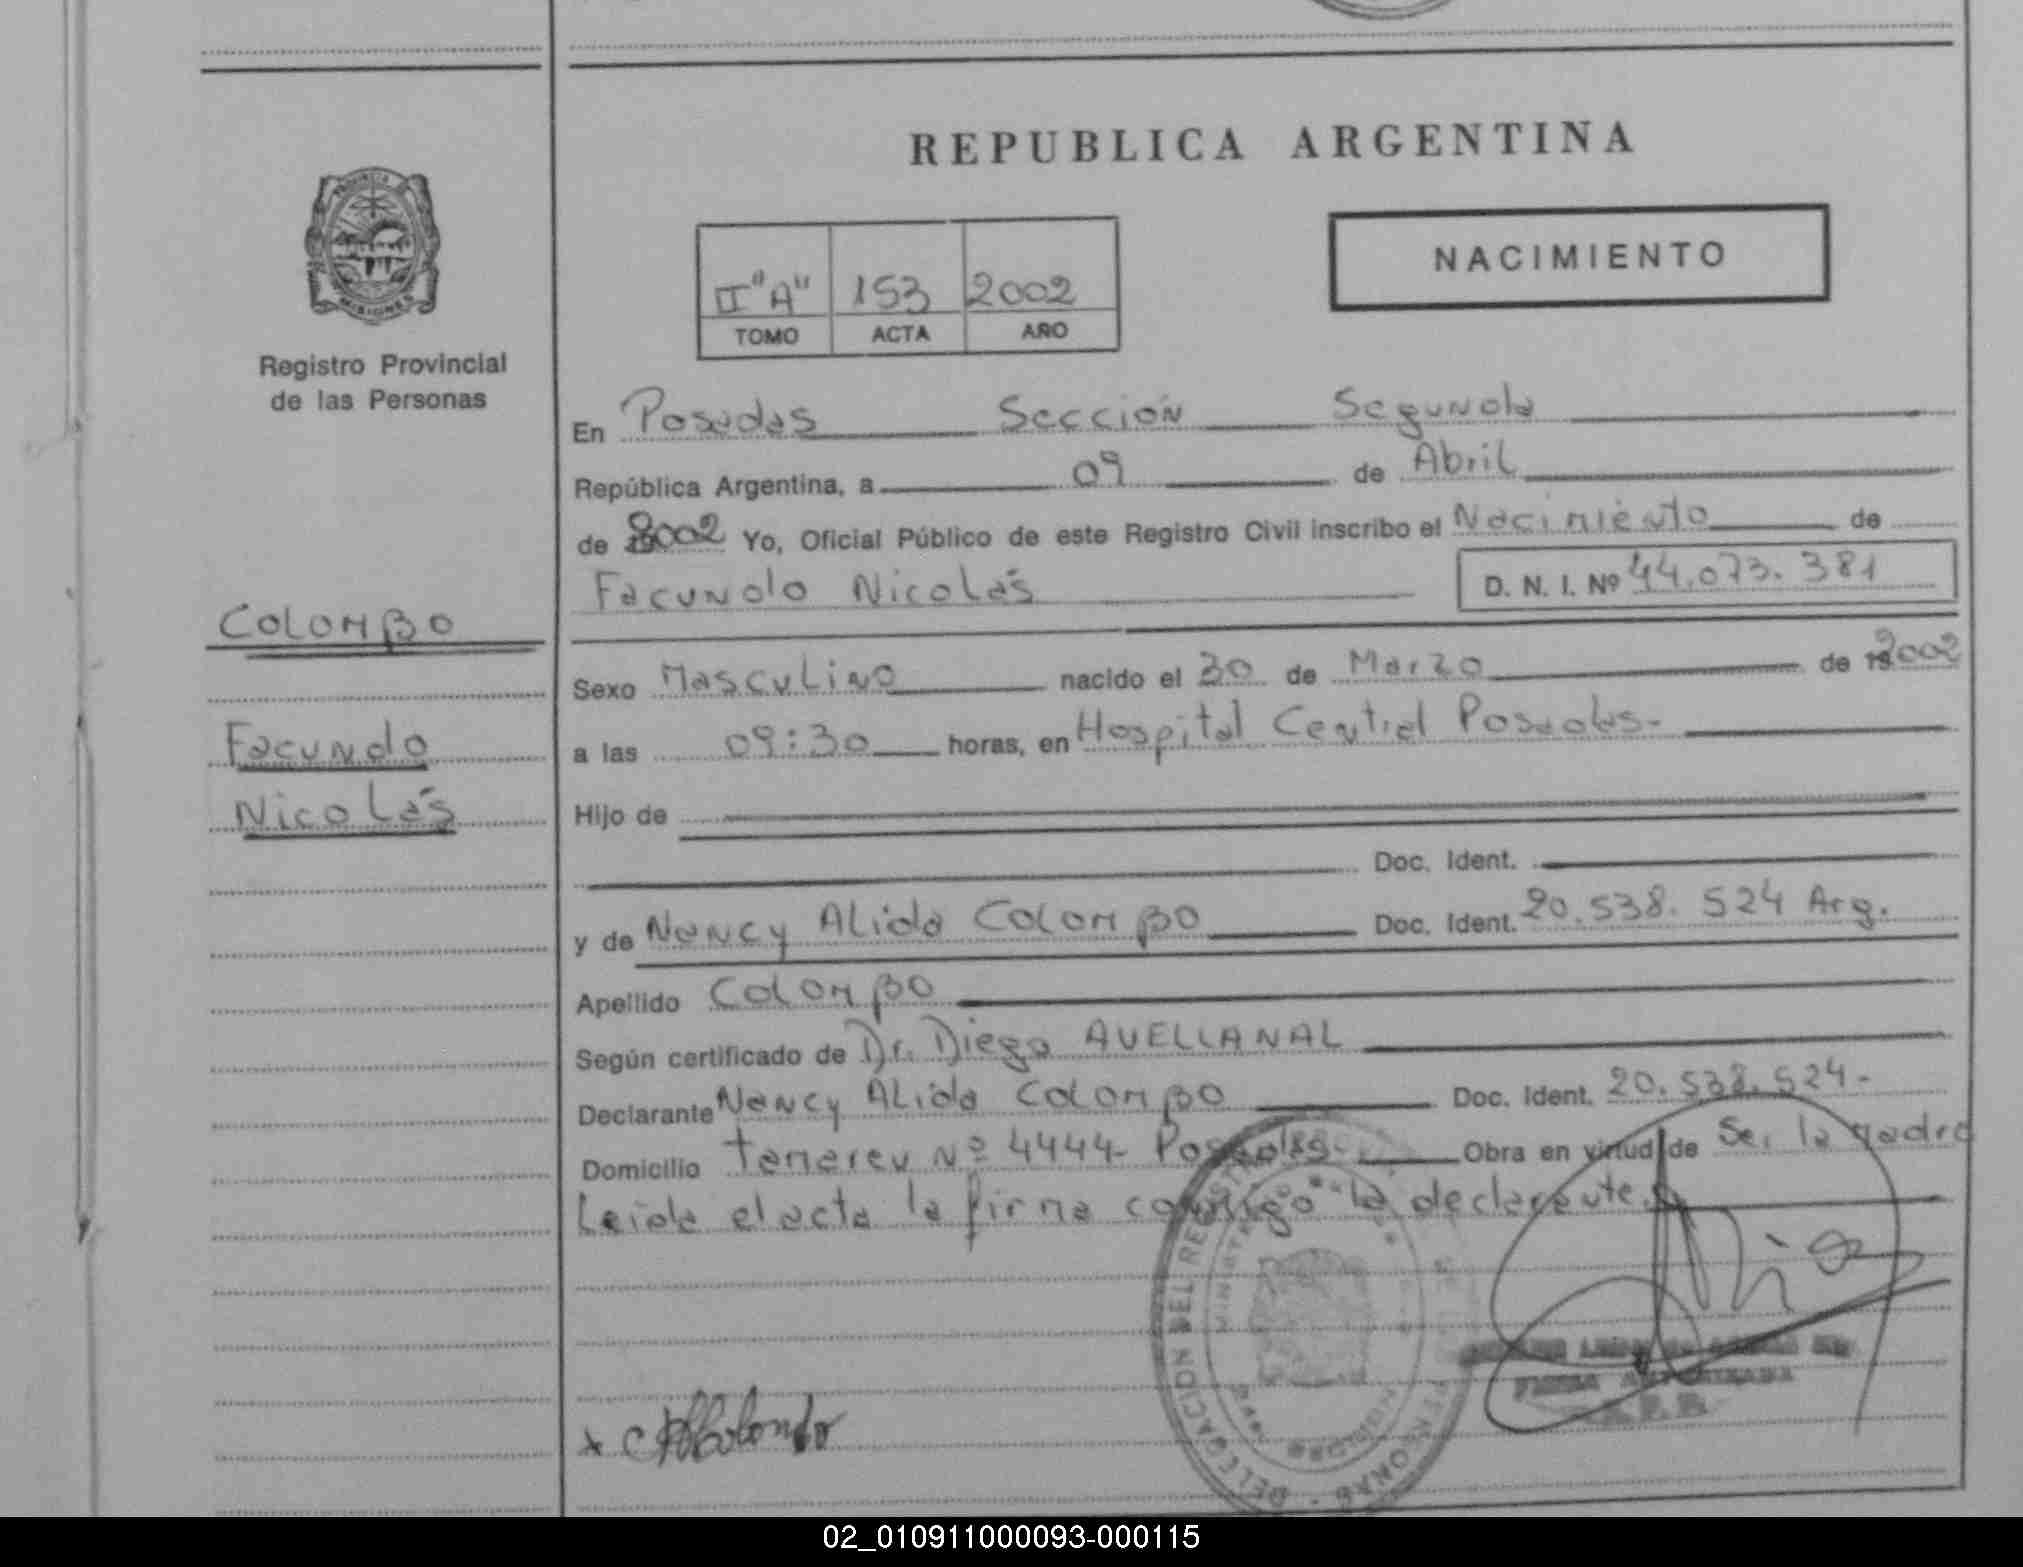 REPUBLICA ARGENTINA
PROVINCIA DE
MISIONES
Registro Provincial
de las Personas
NACIMIENTO
II "A" 153 2002
TOMO ACTA AÑO
En Posadas Sección Segunda
República Argentina, a 09 de Abril
de 2002 Yo, Oficial Público de este Registro Civil inscribo el Nacimiento de
Facundo Nicolás D. N. I. Nº 44.073.381
COLOMBO
Facundo
Nicolás
Sexo Masculino nacido el 30 de Marzo de 2002
a las 09:30 horas, en Hospital Central Posadas-
Hijo de
Doc. Ident.
y de Nancy Alida Colombo Doc. Ident. 20.538.524 Arg.
Apellido Colombo
Según certificado de Dr. Diego AVELLANAL
Declarante Nancy Alida Colombo Doc. Ident. 20.538.524-
Domicilio Nº 4444- Posadas- Obra en virtud de Ser la madre
Leída el acta la firma conmigo la declarante.
DELEGACION DEL REGISTRO PERSONAS
MINISTERIO
MISIONES
FIRMA AUTORIZADA
x Colombo
02_010911000093-000115